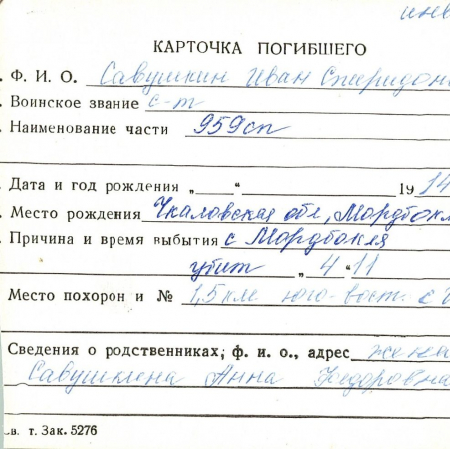 инв
КАРТОЧКА ПОГИБШЕГО
. Ф. И. О. Савушкин Иван Спиридон
. Воинское звание с-т
. Наименование части 959сп
. Дата и год рождения „ “ 1914
. Место рождения Чкаловская обл, Мордбокл
. Причина и время выбытия с Мордбокла
убит „4“ 11
Место похорон и № 1,5 км юго-вост. с
Сведения о родственниках; ф. и. о., адрес жена
Савушкина Анна Федоровна
в. т. Зак. 5276